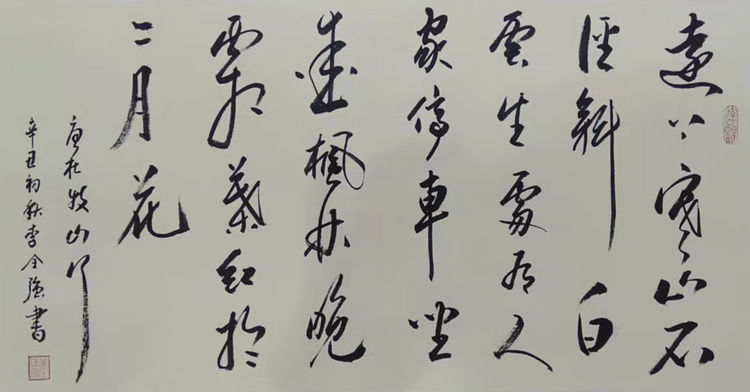 遠上寒山石
徑斜白
雲生處有人
家停車坐
愛楓林晚
霜葉紅於
二月花
唐杜牧山行
辛丑初秋李全強書